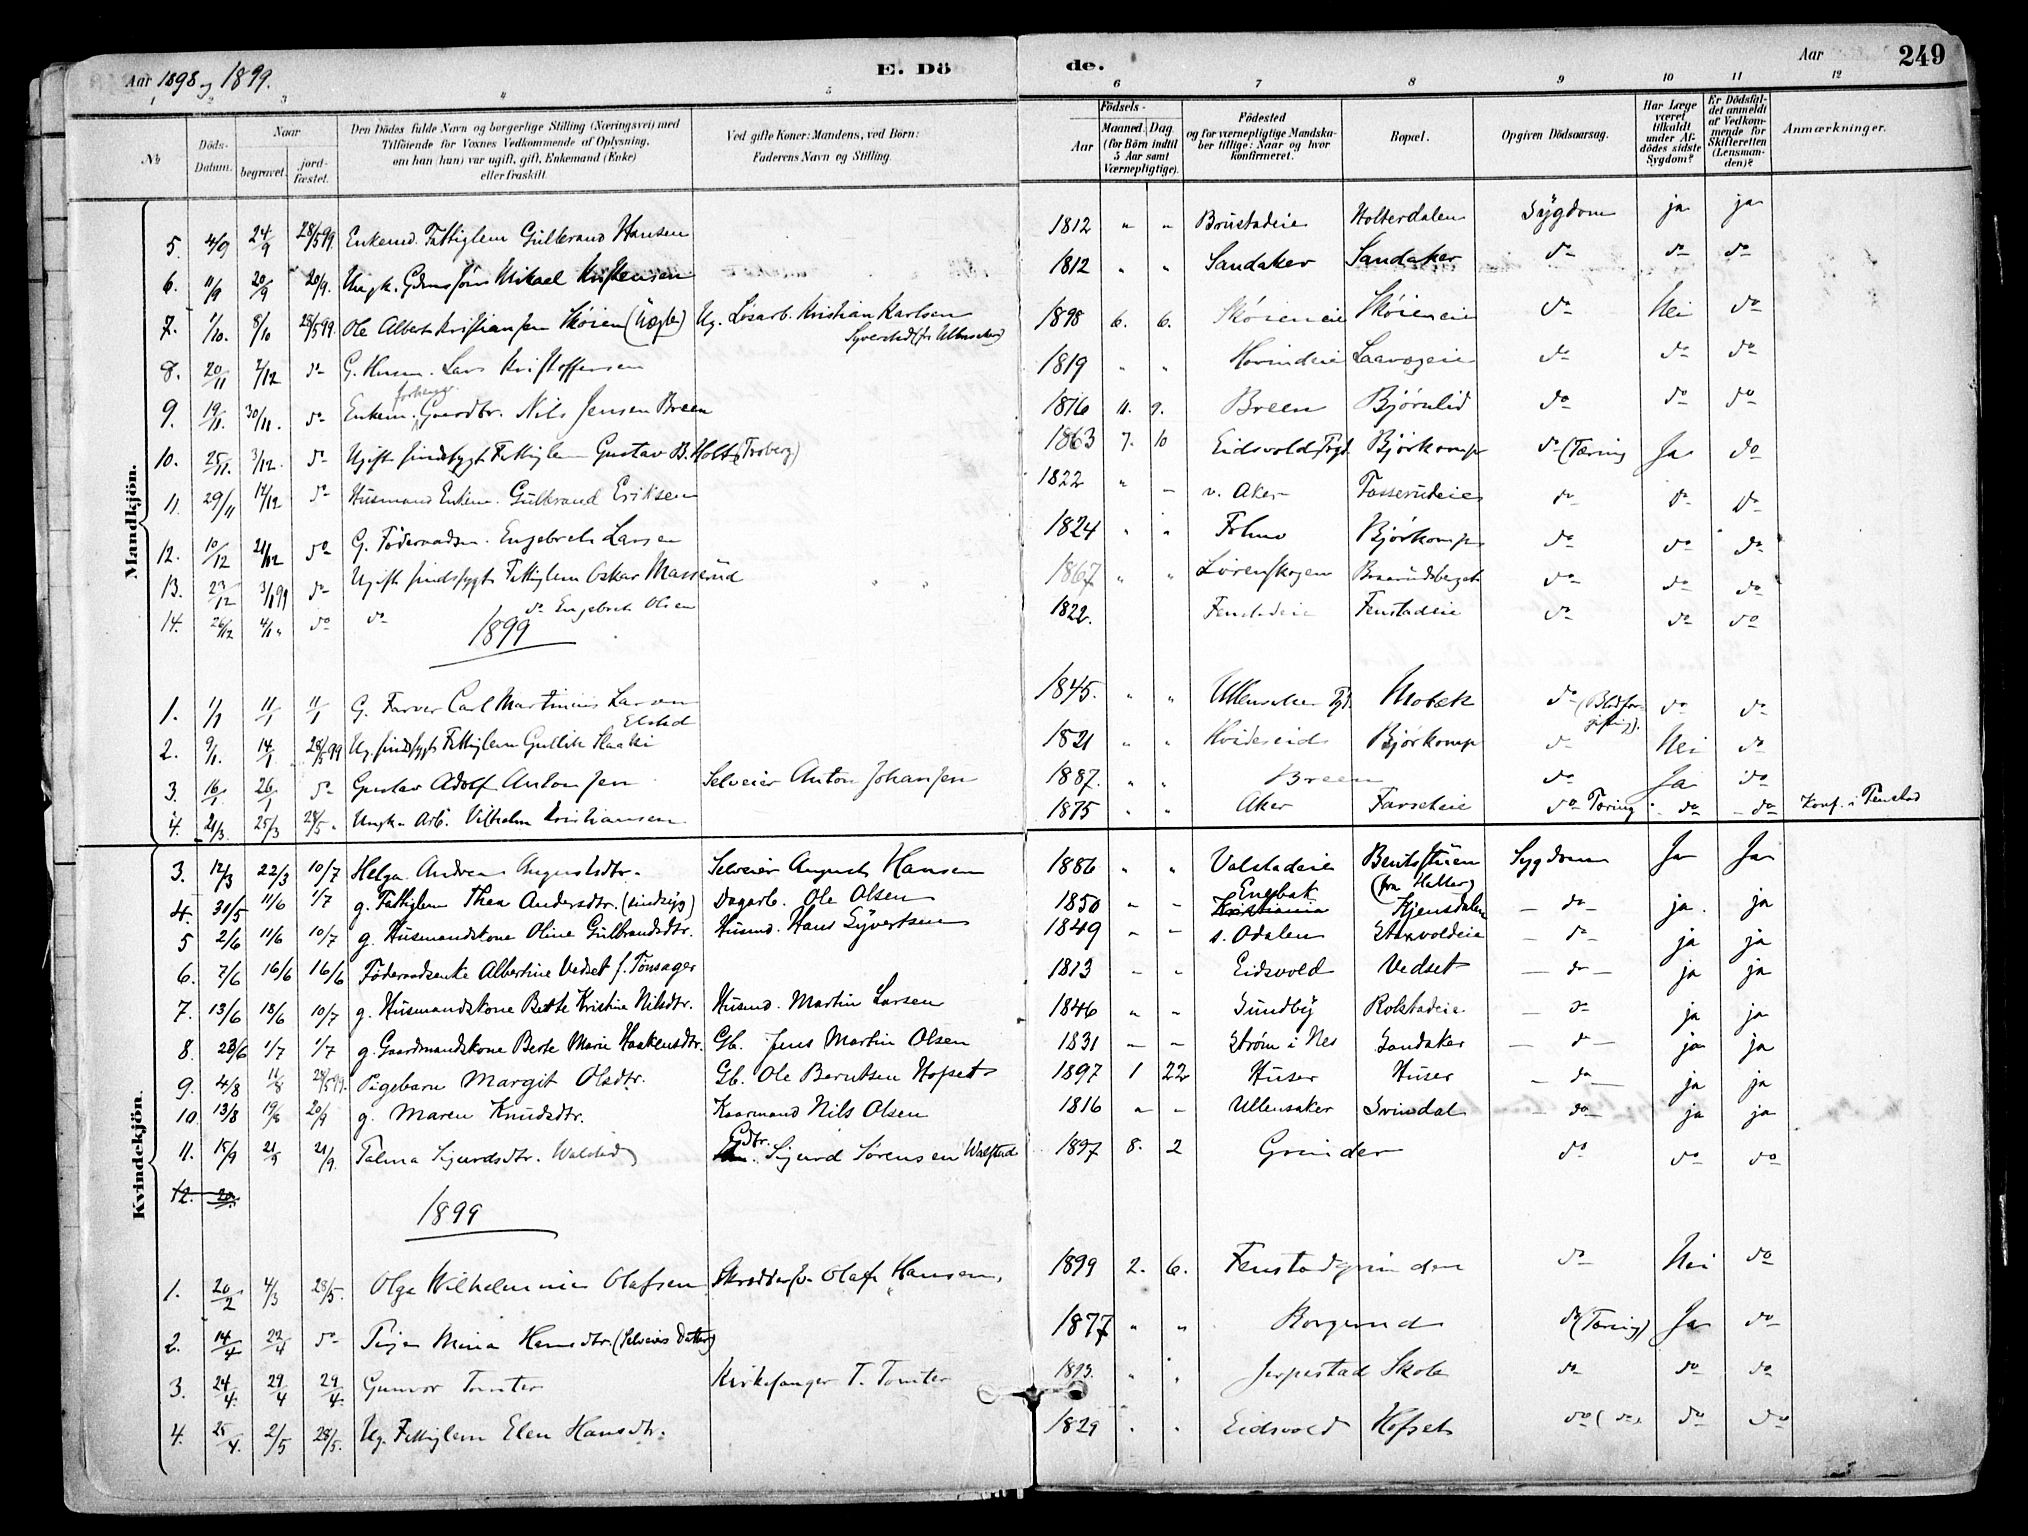 Aar 1898 og 1899. E. Döde. Aar 249
1 2 3 4 5 6 7 8 9 10 11 12
No Döds-Datum. Naar begravet. jord-fæstet. Den Dödes fulde Navn og borgerlige Stilling (Næringsvei) med Tilföiende for Voxnes Vedkommende af Oplysning, om han (hun) var ugift, gift, Enkemand (Enke) eller fraskilt. Ved gifte Koner: Mandens, ved Börn: Faderens Navn og Stilling. Födsels-Aar Maaned. Dag. (for Börn indtil 5 Aar samt Værnepligtige). Födested og for værnepligtige Mandskaber tillige: Naar og hvor konfirmeret. Bopæl. Opgiven Dödsaarsag. Har Læge været tilkaldt under Afdödes sidste Sygdom? Er Dödsfaldet anmeldt af Vedkommende for Skifteretten (Lensmanden)? Anmærkninger.
Mandkjön.
5. 4/9 24/9 28/5 99. Enkemd. Fattiglem Gulbrand Hansen 1812 " " Brustadeie Holterdalen Sygdom ja ja
6. 11/9 20/9 20/9. Ungk. Mikael Kristensen 1812 " " Sandaker Sandaker do do do
7. 1/10. 8/10 28/5 99 Ole Albert Kristiansen Skøien Ug. Løsarb. Kristian Karlsen 1898 6. 6. Skøieneie Skøieneie do Nei do
8. 20/11 7/12 do G. Husm. Lars Kristoffersen 1819 " " Hovindeie do do do
9. 19/11. 30/11. do Enkem. Gaardbr. Nils Jensen Breen 1816 11. 9. Breen Bjørnlid do do do
10. 25/11. 3/12. do Ugift sindssygt Fattiglem Gustav B. Holt 1863 7. 10 Eidsvold Bjørkomp do (Tæring Ja do
11. 29/11 14/12 do Husmand Enkem. Gulbrand Eriksen 1822 " – v. Aker Fosserudeie do do do
12. 10/12 21/12 do G. Föderaadsm. Engebreth Larsen 1824 " " Bjørkomp do do do
13. 23/12 3/1 99 do Ugift sindssygt Fattiglem Oskar Masserud " " 1867 " " Lörenskogen do do do
14. 26/12 4/1 " do do do Engebreth Olsen 1822. Fenstadeie Fenstadeie do do do
1899
1. 1/1 11/1 11/1 G. Farver Carl Martinius Larsen 1845. " " Ullensaker Mobæk do (Blodforgiftning). do do
2. 9/1. 14/1 28/5 99 Ug. sindssygt Fattiglem Gullik Haaki 1821 " " Hvideseid Bjørkomp do Nei do
3. 16/1. 26/1 do Gustav Adolf Antonsen Selveier Anton Johansen 1887. " " Breen do Ja do
4. 21/3. 25/3 28/5 " Ungk. Arb. Vilhelm Kristiansen 1875 " " Aker do Tæring do do Konf. i Fenstad
Kvindekjön.
3. 12/3 22/3 10/7 Helga Andrea Augustsdtr. Selveier August Hansen 1886 " " Valstadeie Bentsstuen Sygdom Ja Ja
4. 31/5 11/6 1/7 g. Fattiglem Thea Andersdtr. (sindssyg) Dagarb. Ole Olsen 1850 – – Kristiania Engbak (fra Holter) Hjensdalen – do – ja. ja
5 2/6 11/6 10/7 g. Husmandskone Oline Gulbrandsdtr. Husmd. Hans Syvertsen 1849 – – s. Odalen – do – ja ja
6. 7/6 16/6 16/6 Föderaadsenke Albertine Vedset f. Tönsager 1813 – " Eidsvold Vedset – do – ja ja
7. 13/6 18/6 10/7 g. Husmandskone Berte Kristine Nilsdtr. Husmd. Martin Larsen 1846 " – Sundby Rolstadeie – do ja ja
8. 23/6 1/7 1/7 g. Gaardmandskone Berte Marie Haakensdtr. Gb. Jens Martin Olsen 1831 – – Strøm i Nes Sandaker – do – ja ja
9. 4/8 11/8 28/5 99. Pigebarn Margit Olsdtr. Gb. Ole Berntsen Hofset 1897 1 22 Huser Huser – do – ja ja
10. 13/8 19/8 20/9 g. Maren Knudsdtr. Kaarmand Nils Olsen 1816 – – Ullensaker Svindal – do – ja ja
11. 15/9 21/9 21/9. Talma Sigurdsdtr. Walstad Gdbr. Sigurd Sörensen Walstad 1897 8. 2 Grinder do do do
12. 20.
1899
1. 20/2 4/3 28/5. Olga Wilhelmine Olafsen Skrædder Olaf Hansen. 1899 2. 6. Fenstadgrinden do Nei do
2. 14/4 22/4 do Pige Mina Hansdtr. (Selveiers Datter) 1877 " " Borgund do (Tæring) Ja do
3. 24/4. 29/4 29/4. Gunvor Tomter Kirkesanger T. Tomter 1893. " " Jerpestad Skole do do do
4. 25/4. 2/5 28/5. Ug. Fattiglem Elen Hansdtr. 1829 " " Eidsvold Hofset do (do). do do